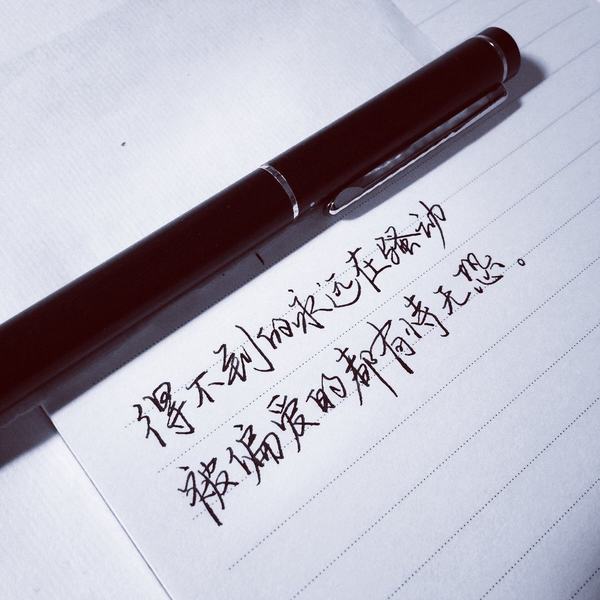 得不到的永远在骚动
被偏爱的都有恃无恐。